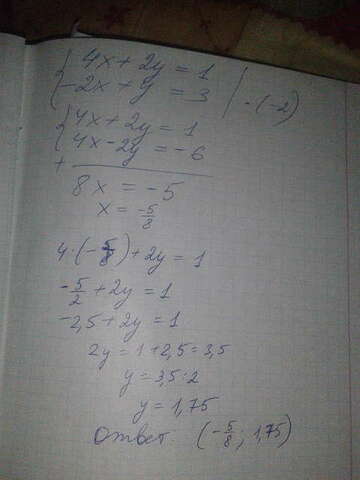 { 4x + 2y = 1
{ -2x + y = 3 | · (-2)
{ 4x + 2y = 1
{ 4x - 2y = -6
+
8x = -5
x = -5/8
4 · (-5/8) + 2y = 1
-5/2 + 2y = 1
-2,5 + 2y = 1
2y = 1 + 2,5 = 3,5
y = 3,5 : 2
y = 1,75
Ответ: (-5/8; 1,75)